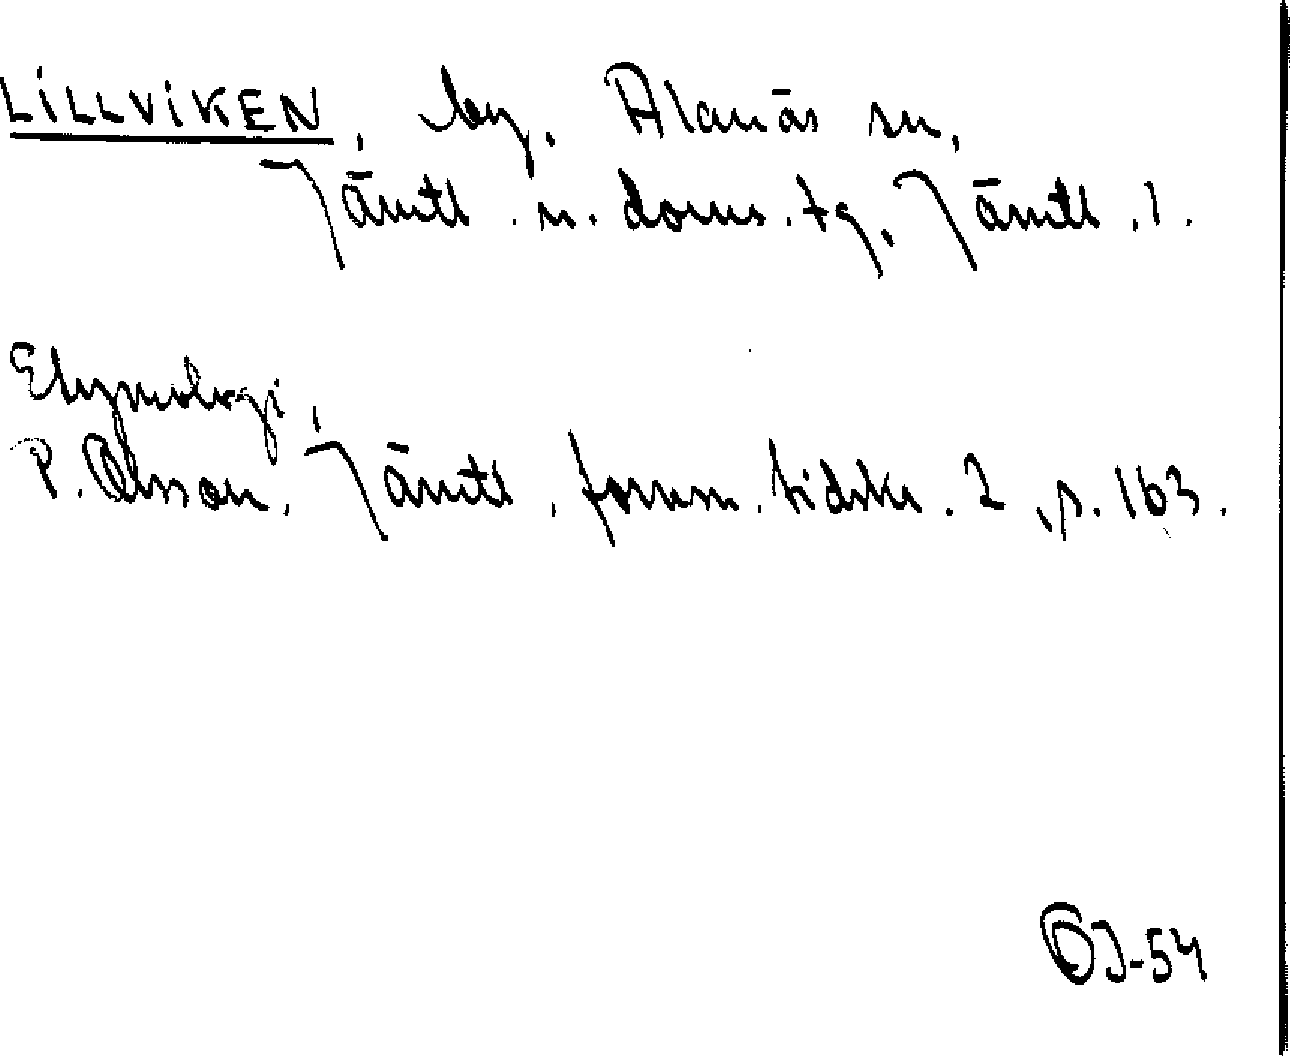 LILLVIKEN, by, Alanäs sn,
Jämtl. n. doms. tg, Jämtl. l.
Etymologi,
P. Olsson, Jämtl. fornm. tidskr. 2, s. 163.
OJ-54